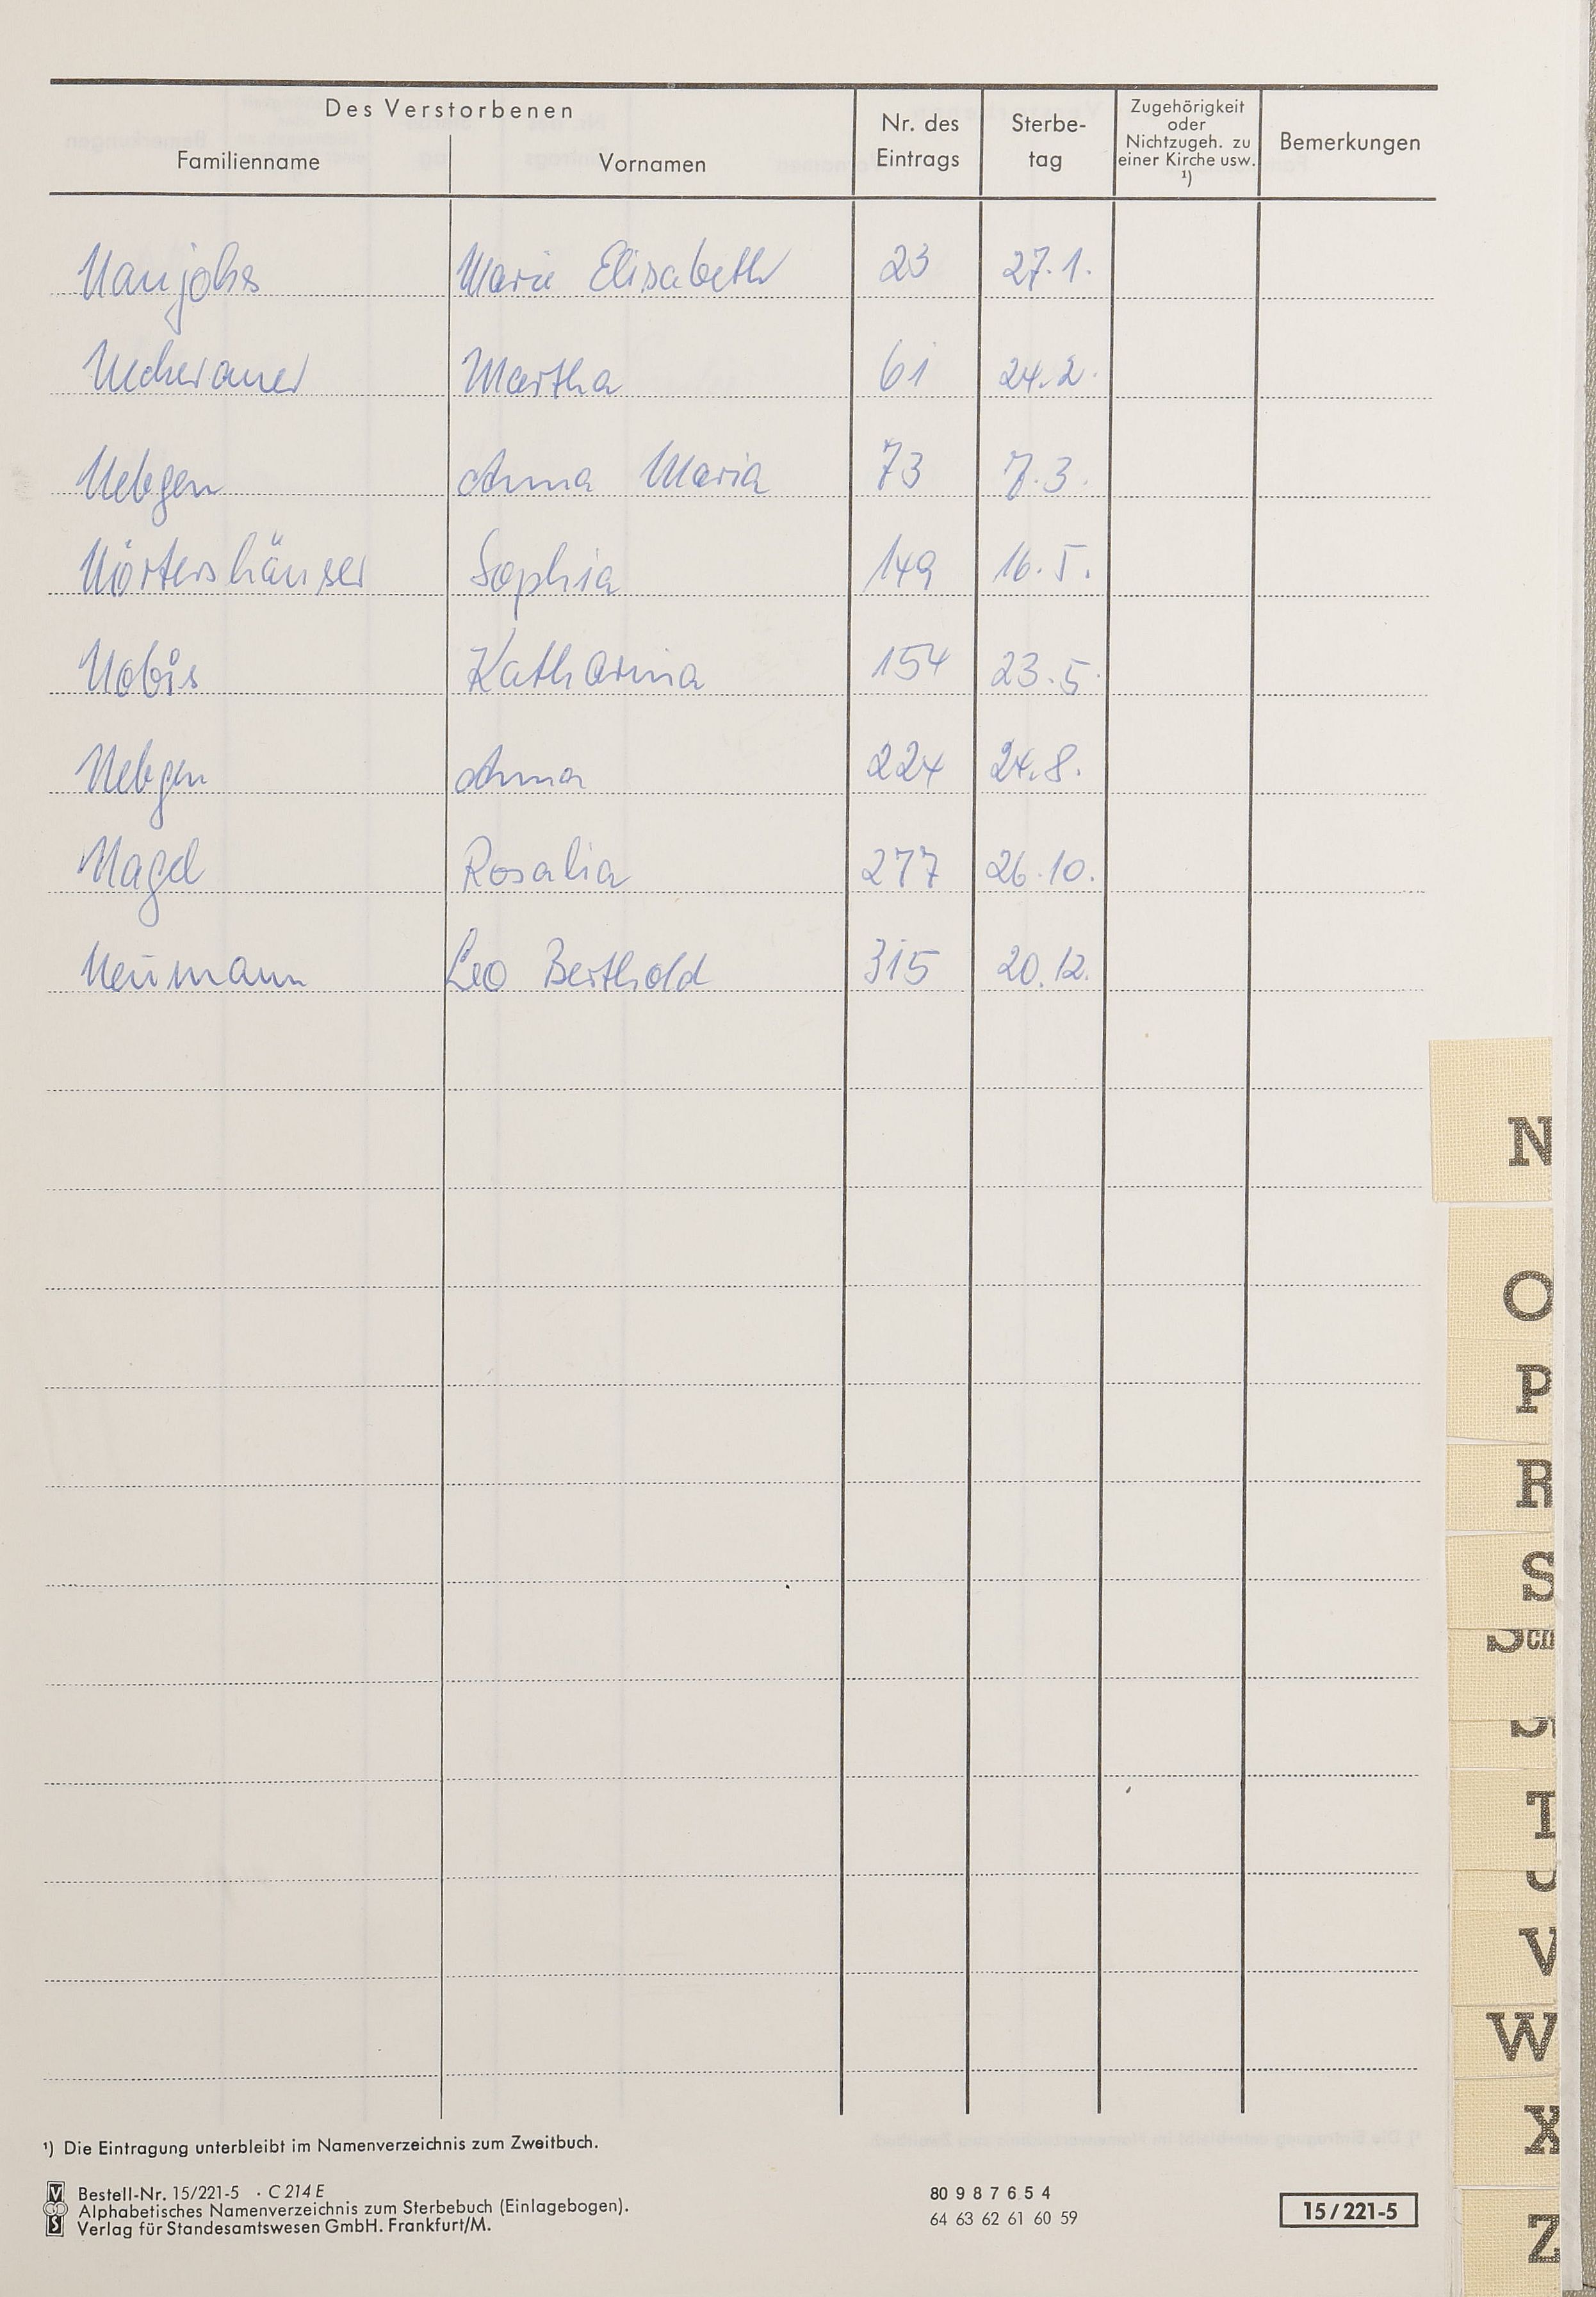 Des Verstorbenen
Familienname Vornamen Nr. des Eintrags Sterbe-tag Zugehörigkeit oder Nichtzugeh. zu einer Kirche usw. ¹) Bemerkungen
Naujoks Marie Elisabeth 23 27.1.
Martha 61 24.2.
Nebgen Anna Maria 73 7.3.
Nörtershäuser Sophia 149 16.5.
Nobis Katharina 154 23.5.
Nebgen Anna 224 24.8.
Nagel Rosalia 277 26.10.
Neumann Leo Berthold 315 20.12.
N
O
P
R
S
Sch
St
T
U
V
W
X
Z
¹) Die Eintragung unterbleibt im Namenverzeichnis zum Zweitbuch.
Bestell-Nr. 15/221-5 · C 214 E
Alphabetisches Namenverzeichnis zum Sterbebuch (Einlagebogen).
Verlag für Standesamtswesen GmbH. Frankfurt/M.
80 9 8 7 6 5 4
64 63 62 61 60 59
15/221-5